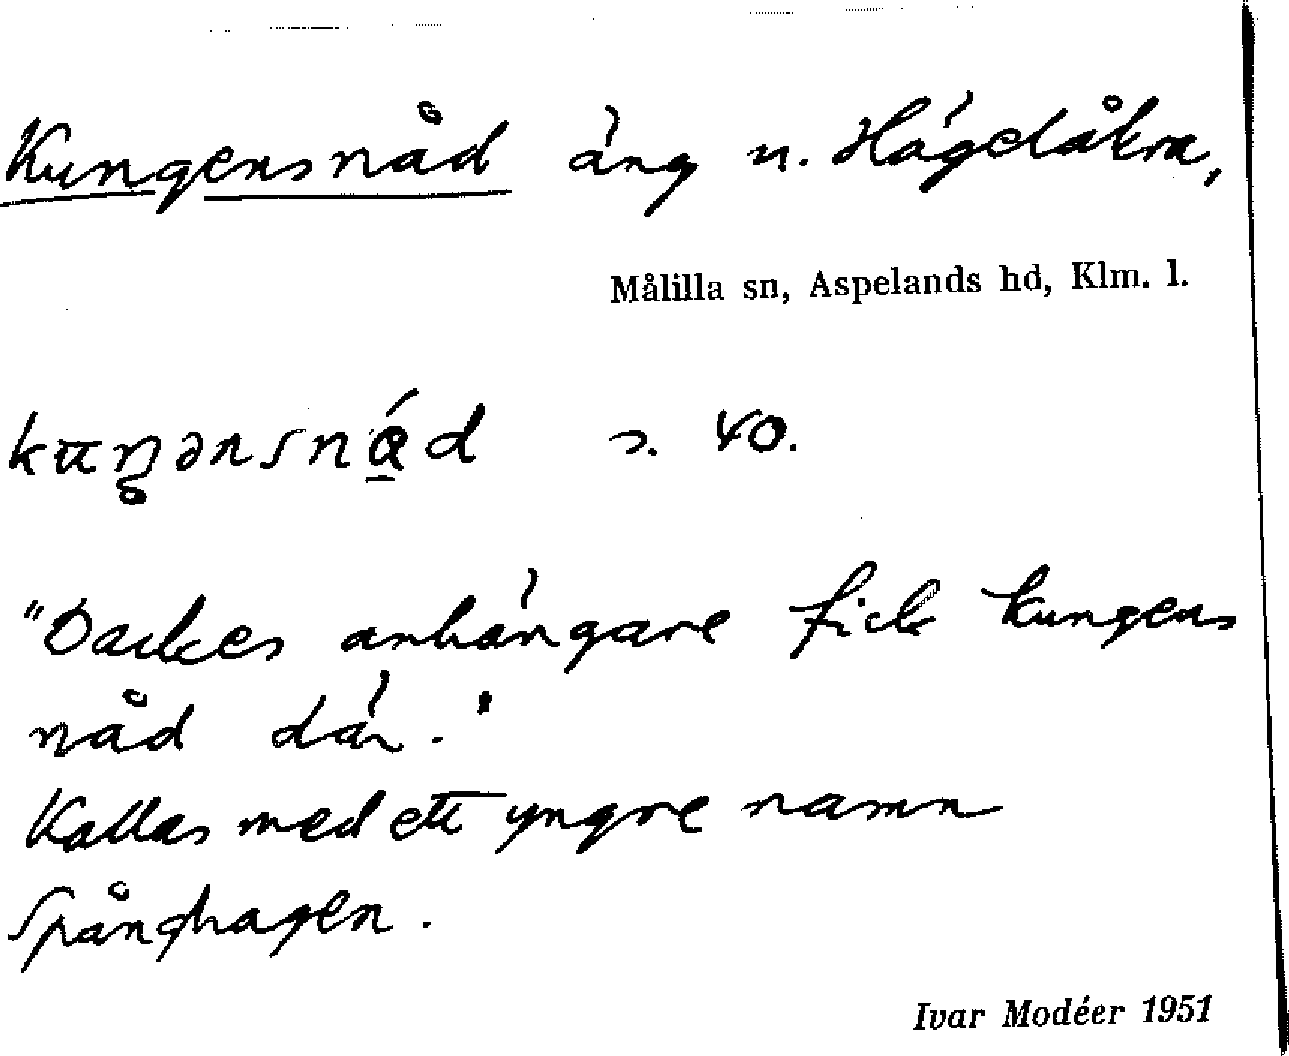 Kungensnåd äng u. Hägelåkra,
Målilla sn, Aspelands hd, Klm. l.
s. 40.
"Dackes anhängare fick kungens
nåd där."
Kallas med ett yngre namn
Spånghagen.
Ivar Modéer 1951